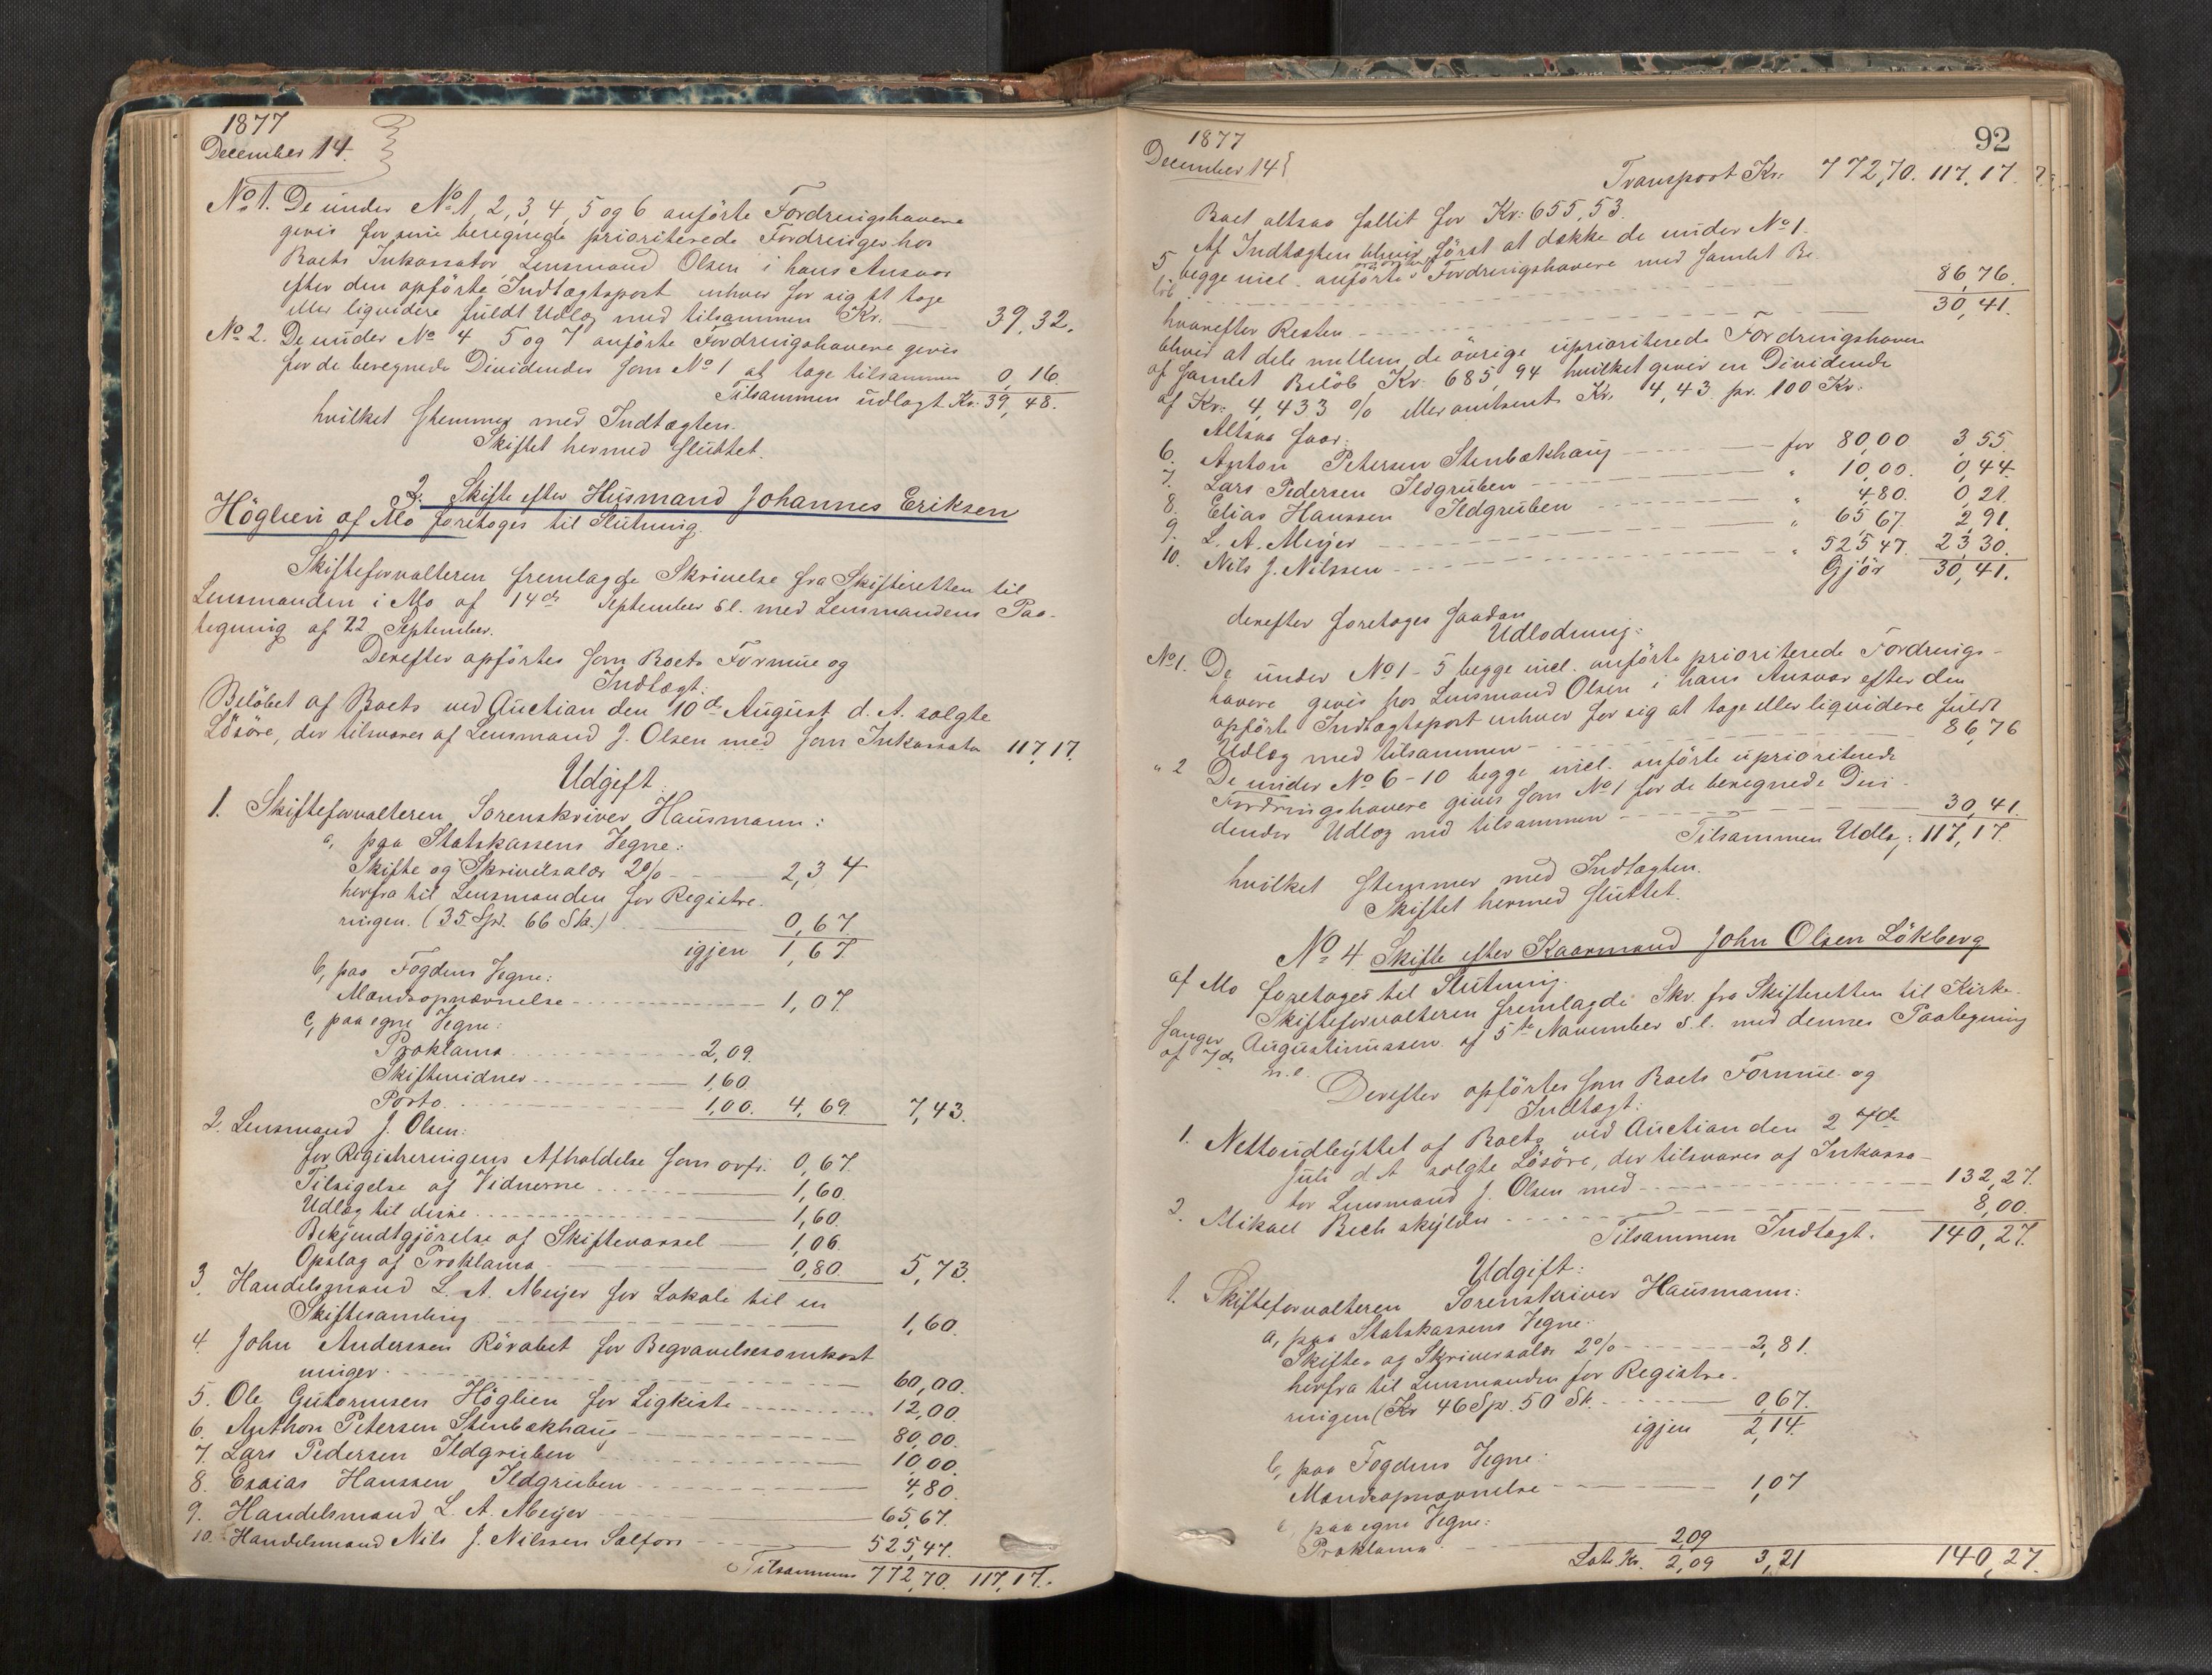 1877
December 14.
No 1. De under No 1, 2, 3, 4, 5 og 6 anförte Fordringshavere
gives for sine beregnede prioriterede Fordringer hos
Boets Inkassator Lensmand Olsen i hans Ansvar
efter den opförte Indtægtspost enhver for sig at tage
eller liquidere fuldt Udlæg med tilsammen Kr. 39,32.
No 2. De under No 4 5 og 7 anförte Fordringshavere gives
for de beregnede Dividender som No 1 at tage tilsammen 0,16.
Tilsammen udlagt Kr. 39,48.
hvilket stemmer med Indtægten.
Skiftet hermed sluttet.
3. Skifte efter Husmand Johannes Eriksen
Höglien af Mo foretoges til Slutning.
Skifteforvalteren fremlagde Skrivelse fra Skifteretten til
Lensmanden i Mo af 14de September s.l. med Lensmandens Paa-
tegning af 22 September.
Derefter opförtes som Boets Formue og
Indtægt:
Belöbet af Boets ved Auction den 10de August d. A. solgte
Lösöre, der tilsvares af Lensmand J. Olsen med som Inkassator 117,17.
Udgift
1. Skifteforvalteren Sorenskriver Hausmann:
a, paa Statskassens Vegne:
Skifte og Skriversalær 2% 2,34
herfra til Lensmanden for Registre-
ringen. (35 Spd. 66 Sk.) 0,67.
igjen 1,67.
b, paa Fogdens Vegne:
Mandsopnævnelse 1,07.
c, paa egne Vegne:
Proklama 2,09.
Skiftevidner 1,60.
Porto. 1,00. 4,69. 7,43.
2. Lensmand J. Olsen:
for Registreringens Afholdelse som ovf. 0,67.
Tilsigelse af Vidnerne 1,60.
Udlæg til disse 1,60.
Bekjendtgjörelse af Skiftevarsel 1,06.
Opslag af Proklama 0,80. 5,73.
3. Handelsmand L. A. Meyer for Lokale til en
Skiftesamling 1,60.
4. John Anderssen Rövabet for Begravelsesomkost
ninger 60,00.
5. Ole Gutormsen Höglien for Ligkiste 12,00.
6. Anthon Petersen Stenbækhaug 80,00.
7. Lars Pedersen Ildgruben 10,00.
8. Esaias Hanssen Ildgruben 4,80.
9. Handelsmand L. A. Meyer 65,67.
10. Handelsmand Nils J. Nilssen Salfors 525,47.
Tilsammen 772,70. 117,17.
92
1877
December 14
Transport Kr. 772,70. 117,17.
Boet altsaa fallit for Kr: 655,53.
Af Indtægten bliver först at dække de under No 1-
5 begge incl. anförte prioriterede Fordringshavere med samlet Be-
löb 86,76.
hvorefter Resten 30,41.
bliver at dele mellem de övrige uprioriterede Fordringshavere
af samlet Belöb Kr. 685,94 hvilket giver en Dividende
af Kr: 4,433 % eller omtrent Kr. 4,43 pr. 100 Kr.
Altsaa faar:
6. Anton Petersen Stenbækhaug for 80,00 3,55
7. Lars Pedersen Ildgruben " 10,00. 0,44.
8. Elias Hanssen Ildgruben " 4,80. 0,21.
9. L. A. Meyer " 65,67. 2,91.
10. Nils J. Nilssen " 525,47. 23,30.
Gjör 30,41.
derefter foretoges saadan
Udlodning:
No 1. De under No 1-5 begge incl. anförte prioriterede Fordrings-
havere gives hos Lensmand Olsen i hans Ansvar efter den
opförte Indtægtspost enhver for sig at tage eller liquidere fuldt
Udlæg med tilsammen 86,76
" 2 De under No 6-10 begge incl. anförte uprioriterede
Fordringshavere gives som No 1 for de beregnede Divi-
dender Udlæg med tilsammen 30,41.
Tilsammen Udlæg: 117,17.
hvilket stemmer med Indtægten.
Skiftet hermed sluttet.
No 4 Skifte efter Kaarmand John Olsen Lökberg
af Mo foretoges til Slutning.
Skifteforvalteren fremlagde Skr. fra Skifteretten til Kirke-
sanger Augustinussen af 5te November s.l. med dennes Paategning
af 7de n.e.
Derefter opförtes som Boets Formue og
Indtægt:
1. Nettoudbyttet af Boets ved Auction den 27de
Juli d. A. solgte Lösöre, der tilsvares af Inkassa-
tor Lensmand J. Olsen med 132,27.
2. Mikael Bech skylder 8,00.
Tilsammen Indtægt. 140,27.
Udgift:
1. Skifteforvalteren Sorenskriver Hausmann:
a, paa Statskassens Vegne:
Skifte- og Skriversalær 2% 2,81.
herfra til Lensmanden for Registre-
ringen (Kr 46 Sp. 50 Sk. 0,67.
igjen 2,14.
b, paa Fogdens Vegne:
Mandsopnævnelse 1,07
c, paa egne Vegne:
Proklama 2,09
Lats. Kr. 2,09 3,21 140,27.